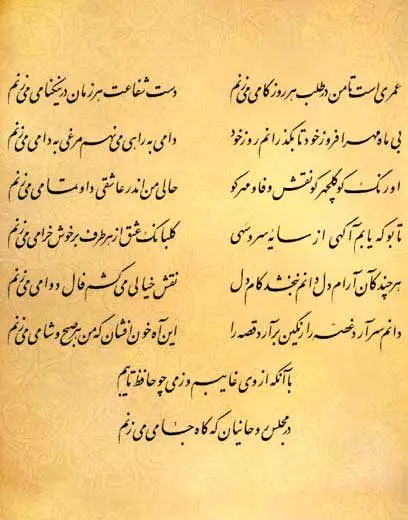 عمری است تا من در طلب هر روز گامی می زنم دست شفاعت هر زمان در نیکنامی می زنم
بی ماه مهر افروز خود تا بگذرانم روز خود دامی به راهی می نهم مرغی به دامی می زنم
اورنگ کو گلچهر کو نقش وفا و مهر کو حالی من اندر عاشقی داو تمامی می زنم
تا بو که یابم آگهی از سایه سرو سهی گلبانگ عشق از هر طرف بر خوش خرامی می زنم
هر چند کآن آرام دل دانم نبخشد کام دل نقش خیالی می کشم فال دوامی می زنم
دانم سر آرد غصه را رنگین برآرد قصه را این آه خون افشان که من هر صبح و شامی می زنم
با آنکه از وی غایبم وز می چو حافظ تایبم
در مجلس روحانیان گه گاه جامی می زنم